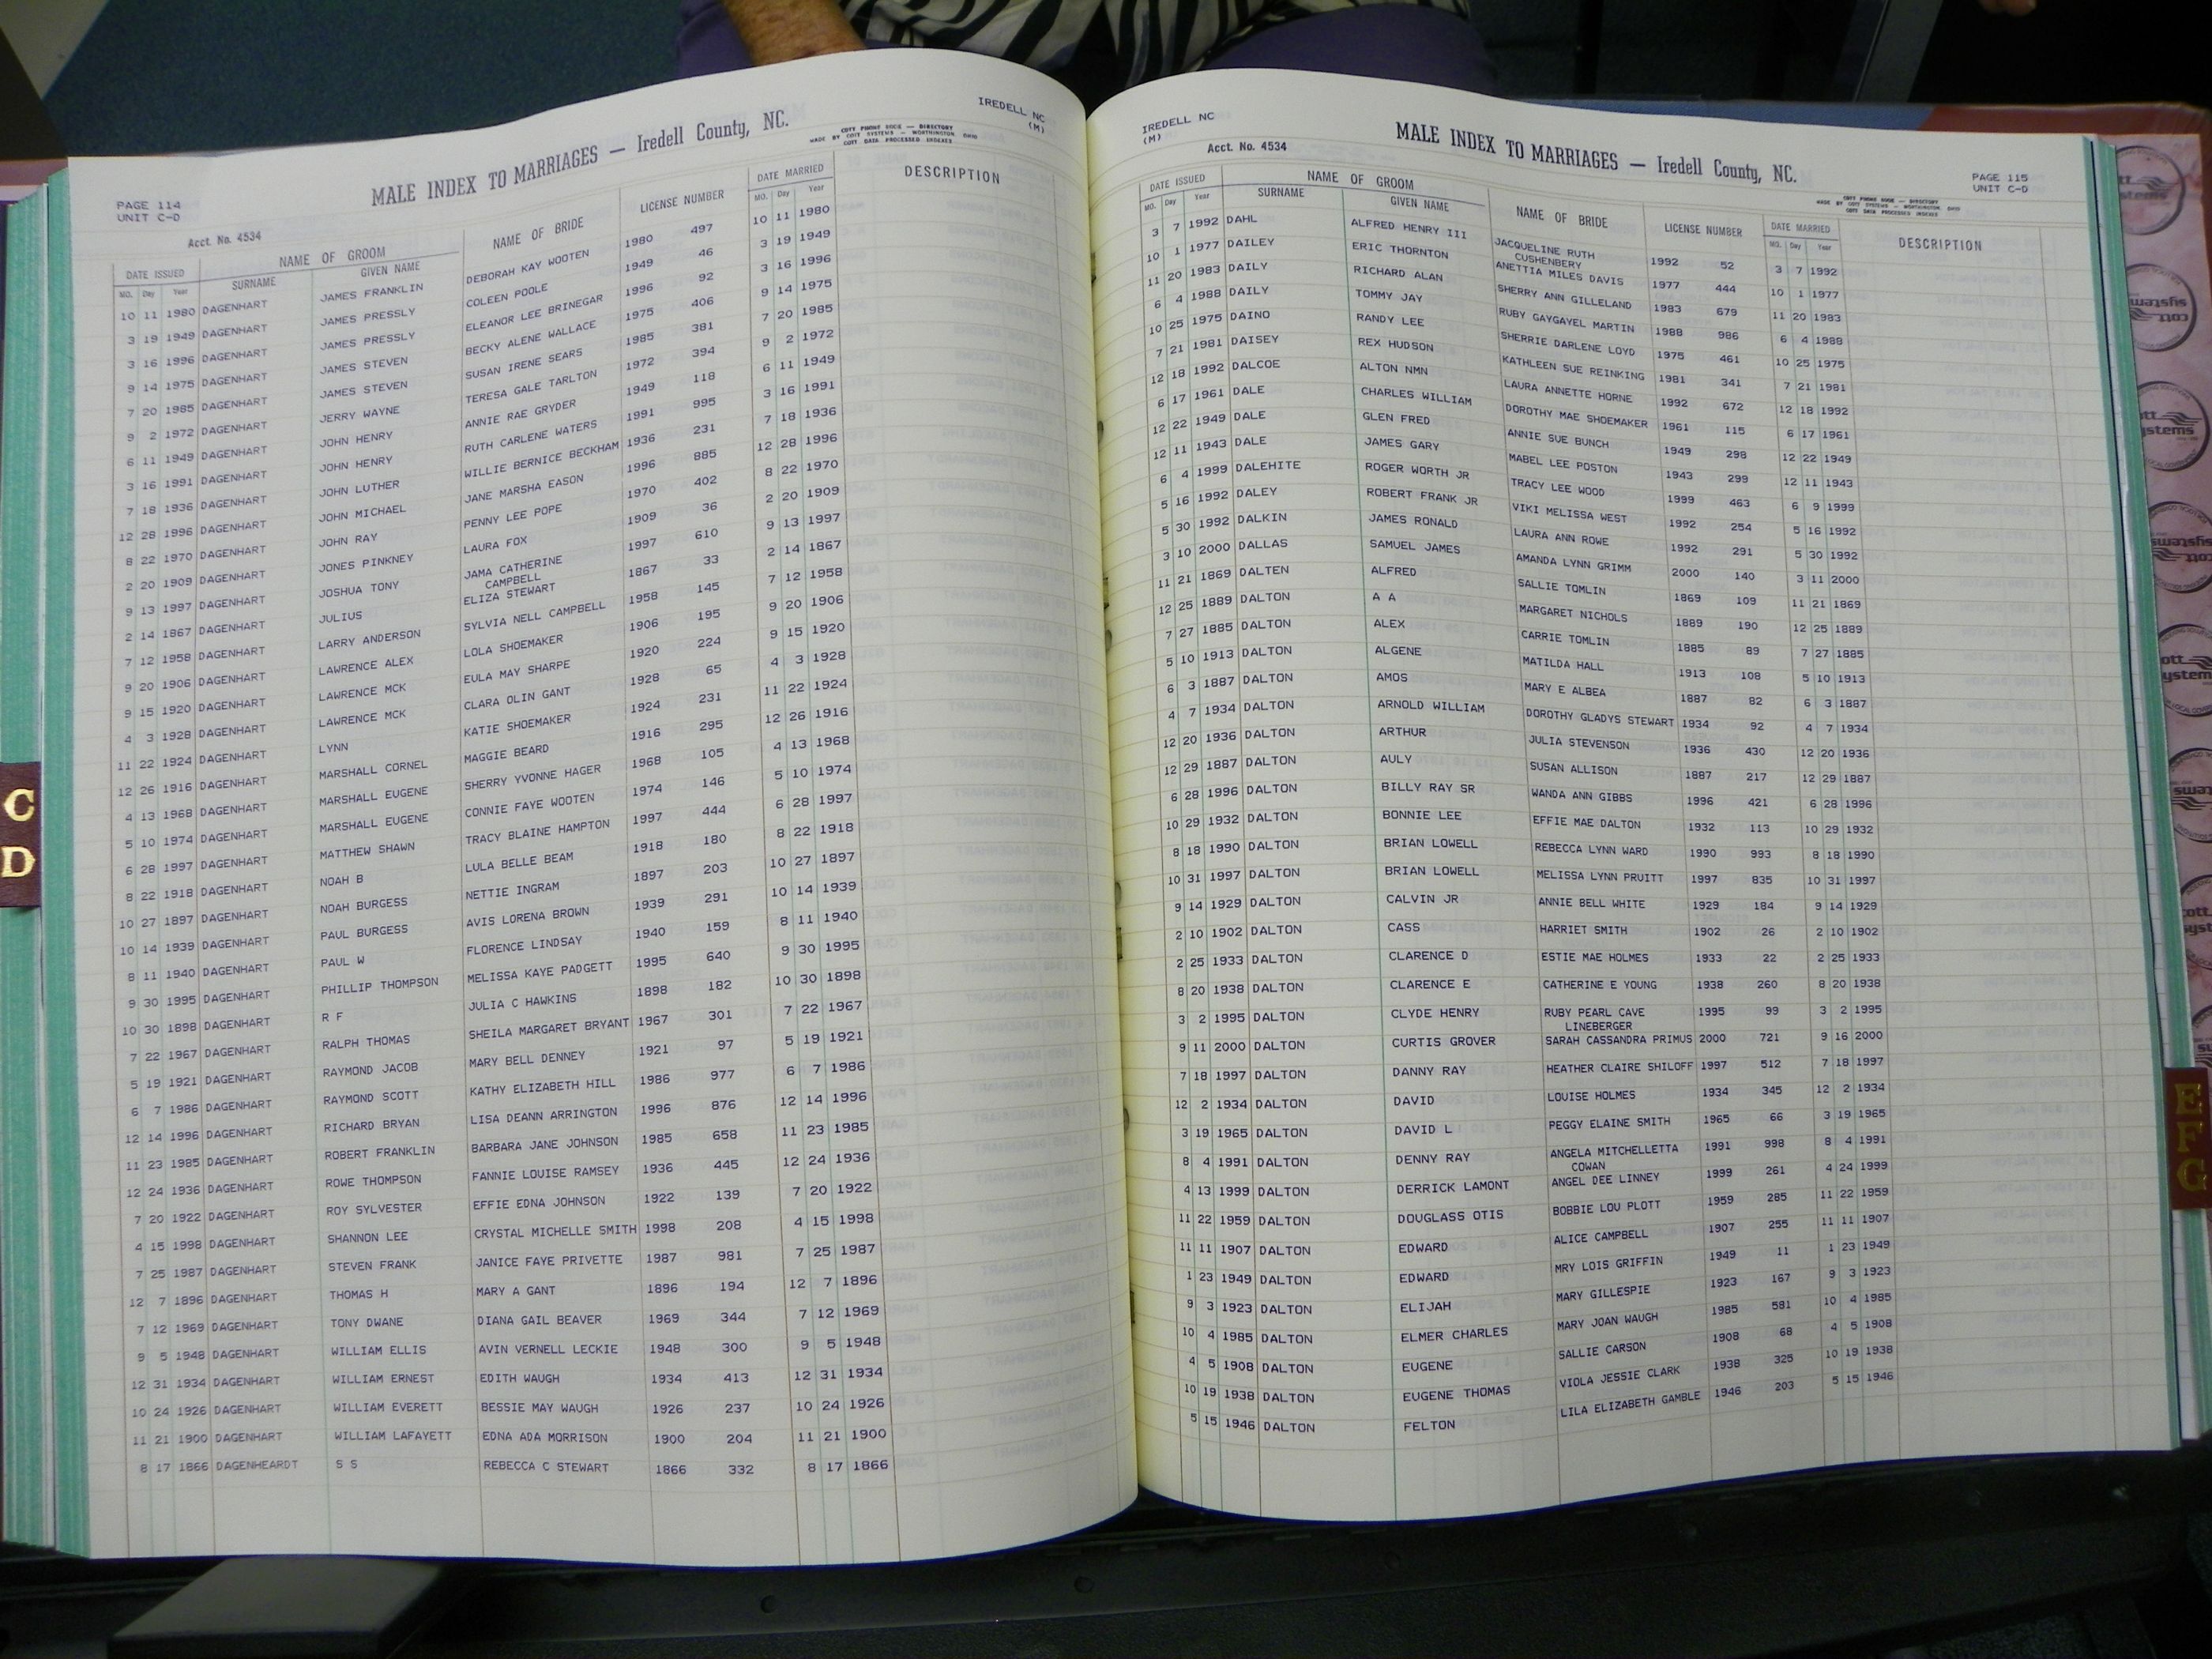 PAGE 114
UNIT C-D
Acct. No. 4534
MALE INDEX TO MARRIAGES — Iredell County, NC.
COTT PHONE BOOK — DIRECTORY
MADE BY COTT SYSTEMS — WORTHINGTON, OHIO
COTT DATA PROCESSED INDEXES
IREDELL NC
(M)
DATE ISSUED NAME OF GROOM NAME OF BRIDE LICENSE NUMBER DATE MARRIED DESCRIPTION
MO. Day Year SURNAME GIVEN NAME MO. Day Year
10 11 1980 DAGENHART JAMES FRANKLIN DEBORAH KAY WOOTEN 1980 497 10 11 1980
3 19 1949 DAGENHART JAMES PRESSLY COLEEN POOLE 1949 46 3 19 1949
3 16 1996 DAGENHART JAMES PRESSLY ELEANOR LEE BRINEGAR 1996 92 3 16 1996
9 14 1975 DAGENHART JAMES STEVEN BECKY ALENE WALLACE 1975 406 9 14 1975
7 20 1985 DAGENHART JAMES STEVEN SUSAN IRENE SEARS 1985 381 7 20 1985
9 2 1972 DAGENHART JERRY WAYNE TERESA GALE TARLTON 1972 394 9 2 1972
6 11 1949 DAGENHART JOHN HENRY ANNIE RAE GRYDER 1949 118 6 11 1949
3 16 1991 DAGENHART JOHN HENRY RUTH CARLENE WATERS 1991 995 3 16 1991
7 18 1936 DAGENHART JOHN LUTHER WILLIE BERNICE BECKHAM 1936 231 7 18 1936
12 28 1996 DAGENHART JOHN MICHAEL JANE MARSHA EASON 1996 885 12 28 1996
8 22 1970 DAGENHART JOHN RAY PENNY LEE POPE 1970 402 8 22 1970
2 20 1909 DAGENHART JONES PINKNEY LAURA FOX 1909 36 2 20 1909
9 13 1997 DAGENHART JOSHUA TONY JAMA CATHERINE 1997 610 9 13 1997
CAMPBELL
2 14 1867 DAGENHART JULIUS ELIZA STEWART 1867 33 2 14 1867
7 12 1958 DAGENHART LARRY ANDERSON SYLVIA NELL CAMPBELL 1958 145 7 12 1958
9 20 1906 DAGENHART LAWRENCE ALEX LOLA SHOEMAKER 1906 195 9 20 1906
9 15 1920 DAGENHART LAWRENCE MCK EULA MAY SHARPE 1920 224 9 15 1920
4 3 1928 DAGENHART LAWRENCE MCK CLARA OLIN GANT 1928 65 4 3 1928
11 22 1924 DAGENHART LYNN KATIE SHOEMAKER 1924 231 11 22 1924
12 26 1916 DAGENHART MARSHALL CORNEL MAGGIE BEARD 1916 295 12 26 1916
4 13 1968 DAGENHART MARSHALL EUGENE SHERRY YVONNE HAGER 1968 105 4 13 1968
5 10 1974 DAGENHART MARSHALL EUGENE CONNIE FAYE WOOTEN 1974 146 5 10 1974
6 28 1997 DAGENHART MATTHEW SHAWN TRACY BLAINE HAMPTON 1997 444 6 28 1997
8 22 1918 DAGENHART NOAH B LULA BELLE BEAM 1918 180 8 22 1918
10 27 1897 DAGENHART NOAH BURGESS NETTIE INGRAM 1897 203 10 27 1897
10 14 1939 DAGENHART PAUL BURGESS AVIS LORENA BROWN 1939 291 10 14 1939
8 11 1940 DAGENHART PAUL W FLORENCE LINDSAY 1940 159 8 11 1940
9 30 1995 DAGENHART PHILLIP THOMPSON MELISSA KAYE PADGETT 1995 640 9 30 1995
10 30 1898 DAGENHART R F JULIA C HAWKINS 1898 182 10 30 1898
7 22 1967 DAGENHART RALPH THOMAS SHEILA MARGARET BRYANT 1967 301 7 22 1967
5 19 1921 DAGENHART RAYMOND JACOB MARY BELL DENNEY 1921 97 5 19 1921
6 7 1986 DAGENHART RAYMOND SCOTT KATHY ELIZABETH HILL 1986 977 6 7 1986
12 14 1996 DAGENHART RICHARD BRYAN LISA DEANN ARRINGTON 1996 876 12 14 1996
11 23 1985 DAGENHART ROBERT FRANKLIN BARBARA JANE JOHNSON 1985 658 11 23 1985
12 24 1936 DAGENHART ROWE THOMPSON FANNIE LOUISE RAMSEY 1936 445 12 24 1936
7 20 1922 DAGENHART ROY SYLVESTER EFFIE EDNA JOHNSON 1922 139 7 20 1922
4 15 1998 DAGENHART SHANNON LEE CRYSTAL MICHELLE SMITH 1998 208 4 15 1998
7 25 1987 DAGENHART STEVEN FRANK JANICE FAYE PRIVETTE 1987 981 7 25 1987
12 7 1896 DAGENHART THOMAS H MARY A GANT 1896 194 12 7 1896
7 12 1969 DAGENHART TONY DWANE DIANA GAIL BEAVER 1969 344 7 12 1969
9 5 1948 DAGENHART WILLIAM ELLIS AVIN VERNELL LECKIE 1948 300 9 5 1948
12 31 1934 DAGENHART WILLIAM ERNEST EDITH WAUGH 1934 413 12 31 1934
10 24 1926 DAGENHART WILLIAM EVERETT BESSIE MAY WAUGH 1926 237 10 24 1926
11 21 1900 DAGENHART WILLIAM LAFAYETT EDNA ADA MORRISON 1900 204 11 21 1900
8 17 1866 DAGENHEARDT S S REBECCA C STEWART 1866 332 8 17 1866
C
D
IREDELL NC
(M)
Acct. No. 4534
MALE INDEX TO MARRIAGES — Iredell County, NC.
PAGE 115
UNIT C-D
COTT PHONE BOOK — DIRECTORY
MADE BY COTT SYSTEMS — WORTHINGTON, OHIO
COTT DATA PROCESSED INDEXES
DATE ISSUED NAME OF GROOM NAME OF BRIDE LICENSE NUMBER DATE MARRIED DESCRIPTION
MO. Day Year SURNAME GIVEN NAME MO. Day Year
3 7 1992 DAHL ALFRED HENRY III JACQUELINE RUTH 1992 52 3 7 1992
CUSHENBERY
10 1 1977 DAILEY ERIC THORNTON ANETTIA MILES DAVIS 1977 444 10 1 1977
11 20 1983 DAILY RICHARD ALAN SHERRY ANN GILLELAND 1983 679 11 20 1983
6 4 1988 DAILY TOMMY JAY RUBY GAYGAYEL MARTIN 1988 986 6 4 1988
10 25 1975 DAINO RANDY LEE SHERRIE DARLENE LOYD 1975 461 10 25 1975
7 21 1981 DAISEY REX HUDSON KATHLEEN SUE REINKING 1981 341 7 21 1981
12 18 1992 DALCOE ALTON NMN LAURA ANNETTE HORNE 1992 672 12 18 1992
6 17 1961 DALE CHARLES WILLIAM DOROTHY MAE SHOEMAKER 1961 115 6 17 1961
12 22 1949 DALE GLEN FRED ANNIE SUE BUNCH 1949 298 12 22 1949
12 11 1943 DALE JAMES GARY MABEL LEE POSTON 1943 299 12 11 1943
6 4 1999 DALEHITE ROGER WORTH JR TRACY LEE WOOD 1999 463 6 9 1999
5 16 1992 DALEY ROBERT FRANK JR VIKI MELISSA WEST 1992 254 5 16 1992
5 30 1992 DALKIN JAMES RONALD LAURA ANN ROWE 1992 291 5 30 1992
3 10 2000 DALLAS SAMUEL JAMES AMANDA LYNN GRIMM 2000 140 3 11 2000
11 21 1869 DALTEN ALFRED SALLIE TOMLIN 1869 109 11 21 1869
12 25 1889 DALTON A A MARGARET NICHOLS 1889 190 12 25 1889
7 27 1885 DALTON ALEX CARRIE TOMLIN 1885 89 7 27 1885
5 10 1913 DALTON ALGENE MATILDA HALL 1913 108 5 10 1913
6 3 1887 DALTON AMOS MARY E ALBEA 1887 82 6 3 1887
4 7 1934 DALTON ARNOLD WILLIAM DOROTHY GLADYS STEWART 1934 92 4 7 1934
12 20 1936 DALTON ARTHUR JULIA STEVENSON 1936 430 12 20 1936
12 29 1887 DALTON AULY SUSAN ALLISON 1887 217 12 29 1887
6 28 1996 DALTON BILLY RAY SR WANDA ANN GIBBS 1996 421 6 28 1996
10 29 1932 DALTON BONNIE LEE EFFIE MAE DALTON 1932 113 10 29 1932
8 18 1990 DALTON BRIAN LOWELL REBECCA LYNN WARD 1990 993 8 18 1990
10 31 1997 DALTON BRIAN LOWELL MELISSA LYNN PRUITT 1997 835 10 31 1997
9 14 1929 DALTON CALVIN JR ANNIE BELL WHITE 1929 184 9 14 1929
2 10 1902 DALTON CASS HARRIET SMITH 1902 26 2 10 1902
2 25 1933 DALTON CLARENCE D ESTIE MAE HOLMES 1933 22 2 25 1933
8 20 1938 DALTON CLARENCE E CATHERINE E YOUNG 1938 260 8 20 1938
3 2 1995 DALTON CLYDE HENRY RUBY PEARL CAVE 1995 99 3 2 1995
LINEBERGER
9 11 2000 DALTON CURTIS GROVER SARAH CASSANDRA PRIMUS 2000 721 9 16 2000
7 18 1997 DALTON DANNY RAY HEATHER CLAIRE SHILOFF 1997 512 7 18 1997
12 2 1934 DALTON DAVID LOUISE HOLMES 1934 345 12 2 1934
3 19 1965 DALTON DAVID L PEGGY ELAINE SMITH 1965 66 3 19 1965
8 4 1991 DALTON DENNY RAY ANGELA MITCHELLETTA 1991 998 8 4 1991
COWAN
4 13 1999 DALTON DERRICK LAMONT ANGEL DEE LINNEY 1999 261 4 24 1999
11 22 1959 DALTON DOUGLASS OTIS BOBBIE LOU PLOTT 1959 285 11 22 1959
11 11 1907 DALTON EDWARD ALICE CAMPBELL 1907 255 11 11 1907
1 23 1949 DALTON EDWARD MRY LOIS GRIFFIN 1949 11 1 23 1949
9 3 1923 DALTON ELIJAH MARY GILLESPIE 1923 167 9 3 1923
10 4 1985 DALTON ELMER CHARLES MARY JOAN WAUGH 1985 581 10 4 1985
4 5 1908 DALTON EUGENE SALLIE CARSON 1908 68 4 5 1908
10 19 1938 DALTON EUGENE THOMAS VIOLA JESSIE CLARK 1938 325 10 19 1938
5 15 1946 DALTON FELTON LILA ELIZABETH GAMBLE 1946 203 5 15 1946
E
F
G